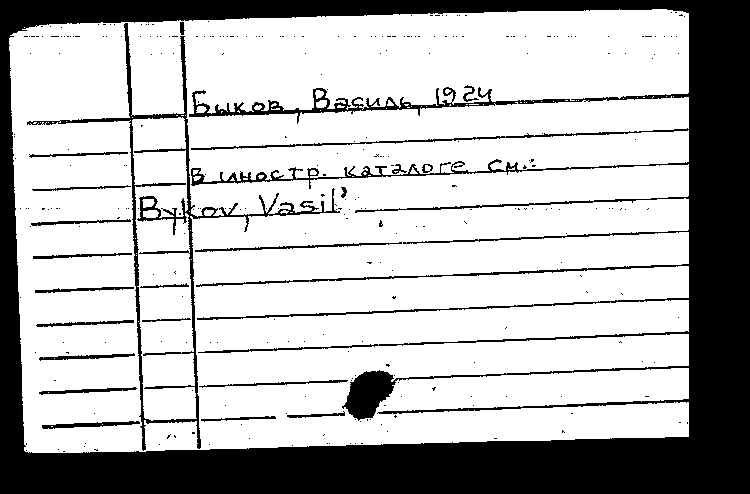 Быков, Василь, 1924
В иностр. каталоге см.:
Bykov, Vasil'